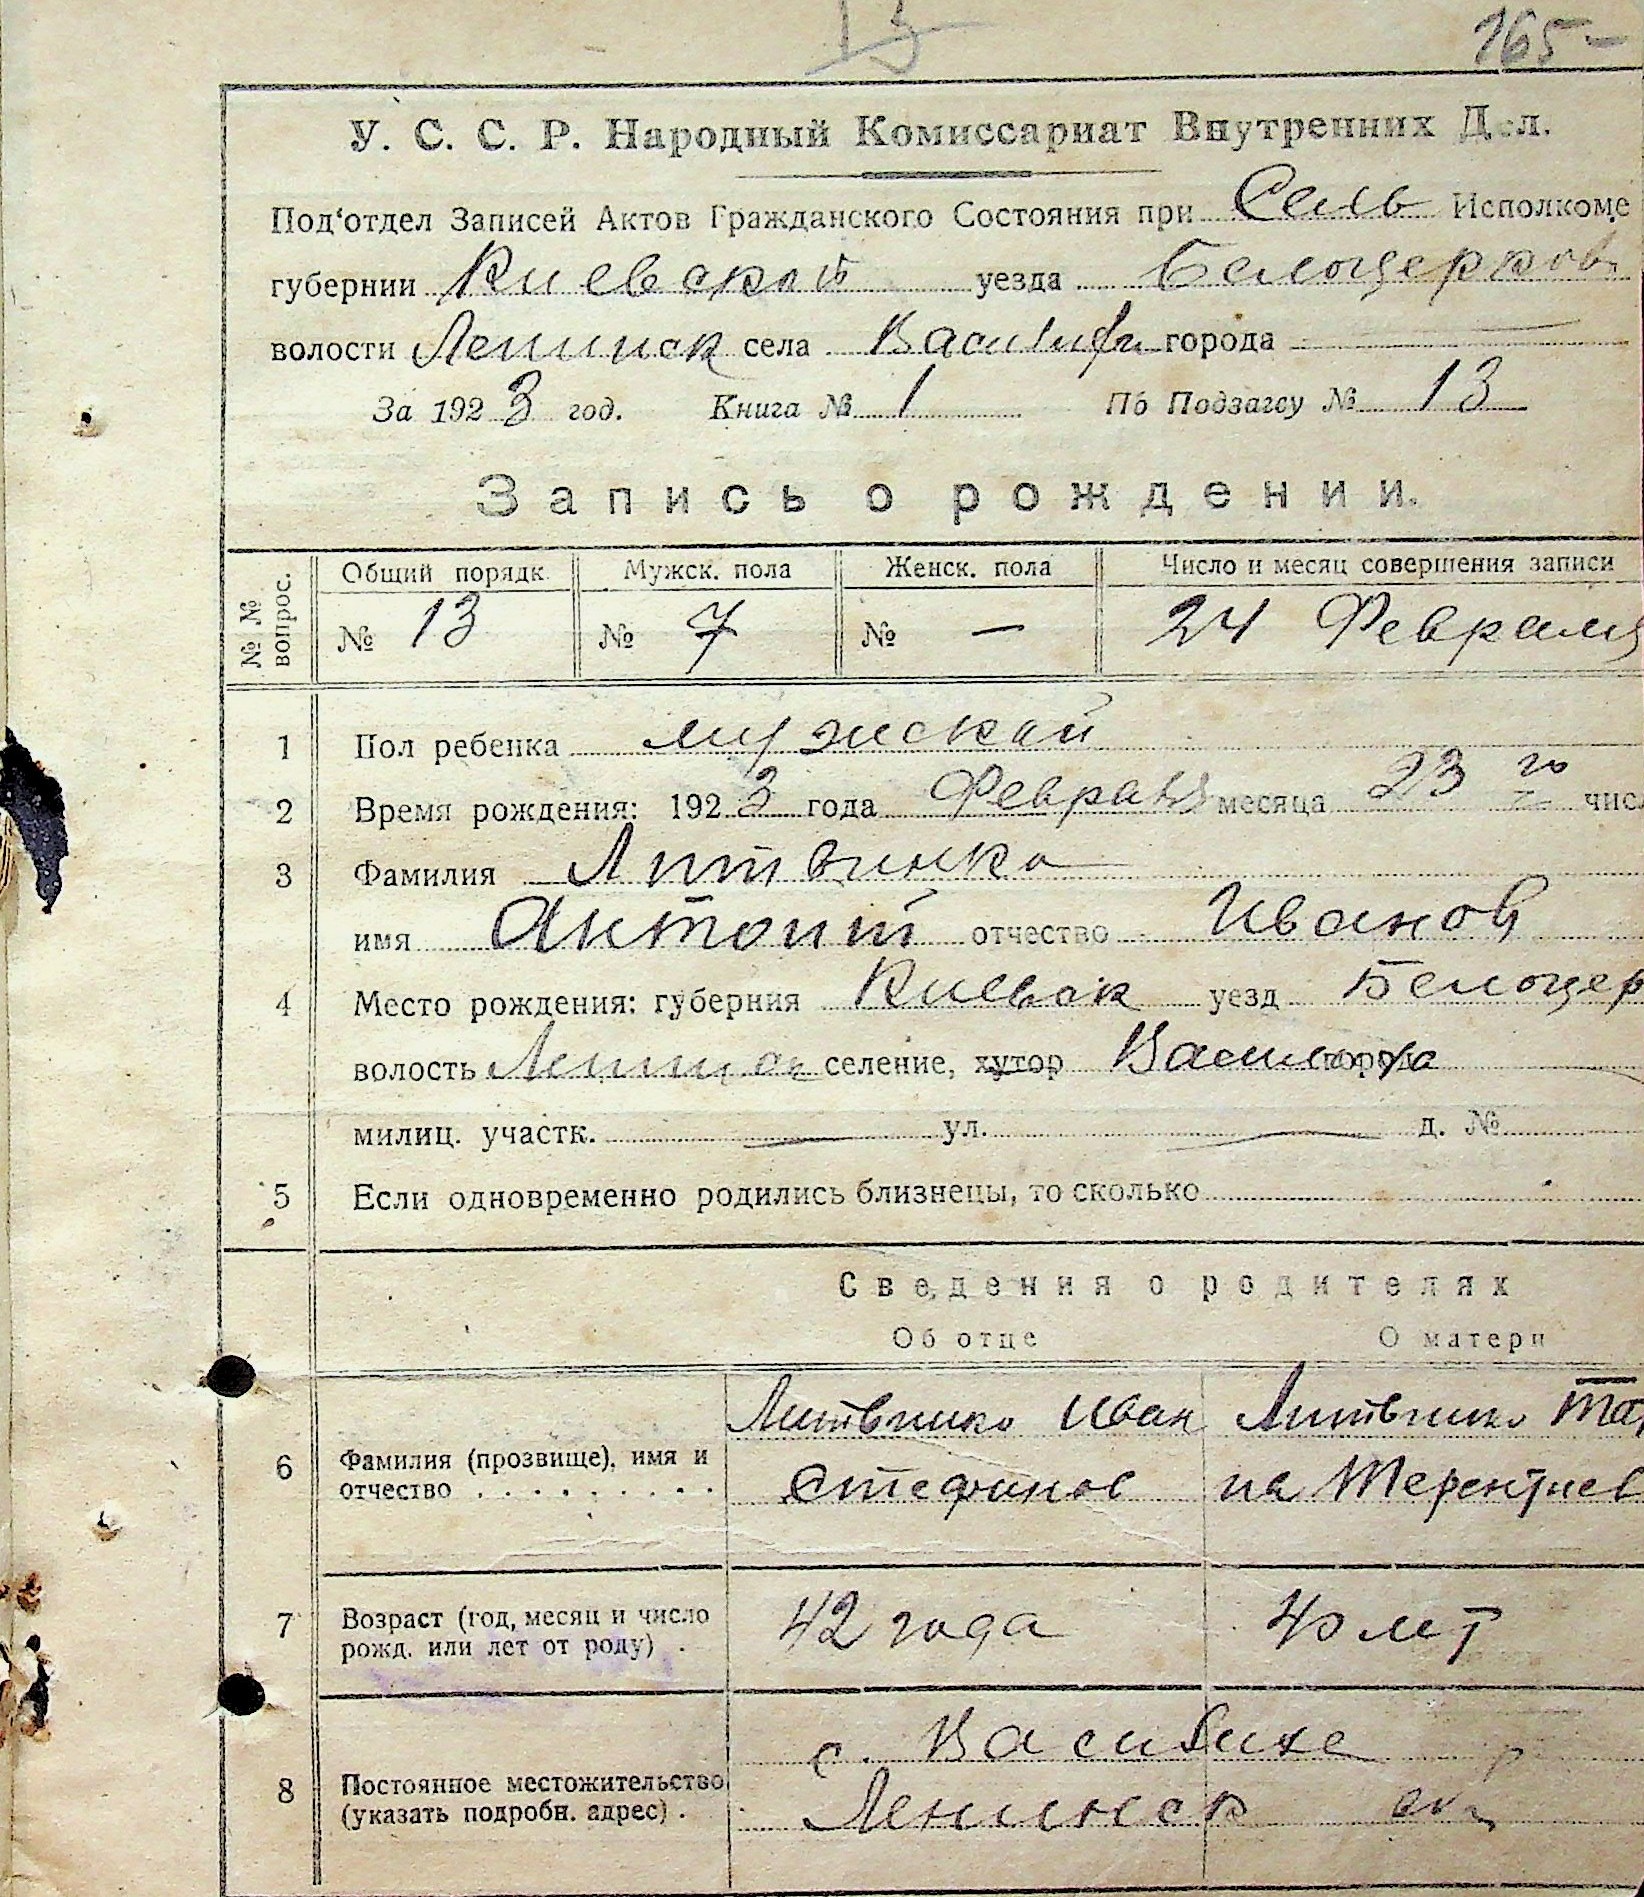 13
165-
У. С. С. Р. Народный Комиссариат Внутренних Дел.
Под'отдел Записей Актов Гражданского Состояния при Сель Исполкоме
губернии Киевской уезда Белоцерков
волости Ленинск села города
За 1923 год. Книга № 1 По Подзагсу № 13
Запись о рождении.
№ № вопрос. Общий порядк. Мужск. пола Женск. пола Число и месяц совершения записи
№ 13 № 7 № — 24 Февраля
1 Пол ребенка мужской
2 Время рождения: 1923 года Февраля месяца 23 го числ
3 Фамилия Литвинко
имя Антоний отчество Иванов
4 Место рождения: губерния Киевск уезд Белоцер
волость Ленинск селение, хутор
милиц. участк. — ул. — д. №
5 Если одновременно родились близнецы, то сколько
Сведения о родителях
Об отце О матери
Литвинко Иван Литвинко Та
6 Фамилия (прозвище), имя и
отчество . . . . . . . . . Стефанов на Терентиев
7 Возраст (год, месяц и число
рожд. или лет от роду) . 42 года 40 лет
с.
8 Постоянное местожительство
(указать подробн. адрес) . Ленинск